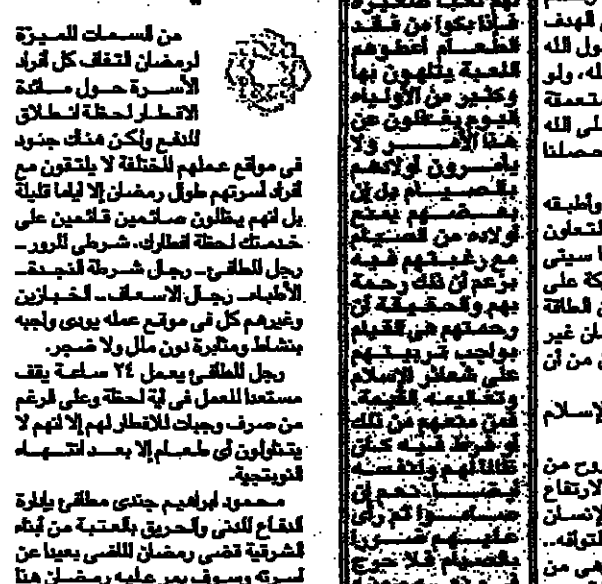 من السمات المميزة
لرمضان التفاف كل أفراد
الأسرة حول مائدة
الافطار لحظة انطلاق
المدفع ولكن هناك جنود
فى مواقع عملهم المختلفة لا يلتقون مع
أفراد أسرتهم طوال رمضان إلا أياما قليلة
بل انهم يظلون صائمين قائمين على
خدمتك لحظة افطارك، شرطى المرور ـ
رجل المطافئ ـ رجال شرطة النجدة ـ
الأطباء ـ رجال الاسعاف ـ الخبازين
وغيرهم كل فى موقع عمله يودى واجبه
بنشاط ومثابرة دون ملل ولا ضجر.
رجل المطافئ يعمل ٢٤ ساعة يقف
مستعدا للعمل فى أية لحظة وعلى الرغم
من صرف وجبات للافطار لهم إلا انهم لا
يتناولون أى طعام إلا بعد انتهاء
النوبتجية.
محمود ابراهيم جندى مطافئ بإدارة
الدفاع المدنى والحريق بالعتبة من أبناء
الشرقية قضى رمضان الماضى بعيدا عن
أسرته وسوف يمر عليه رمضان هذا
فإذا بكوا من فقد
الطعام أعطوهم
اللعبة يتلهون بها
وكثير من الأولياء
اليوم يغفلون عن
هذا الأمر ولا
يأمرون أولادهم
بالصيام بل إن
بعضهم يمنع
أولاده من الصيام
مع رغبتهم فيه
بزعم أن ذلك رحمة
بهم والحقيقة أن
رحمتهم هى القيام
بواجب تربيتهم
على شعائر الإسلام
وتعاليمه القيمة
فمن منعهم من ذلك
أو فرط فيه كان
ظالما لهم ولنفسه
أيضا نعم إن
صاموا ثم رأى
عليهم ضررا
بالصيام فلا حرج
الهدف
ول الله
له، ولو
ستعمقة
على الله
حصلنا
وأطبقه
التعاون
سيتى
كة على
الطاقة
ان غير
من أن
لإسلام
وح من
الارتفاع
الإنسان
هى من